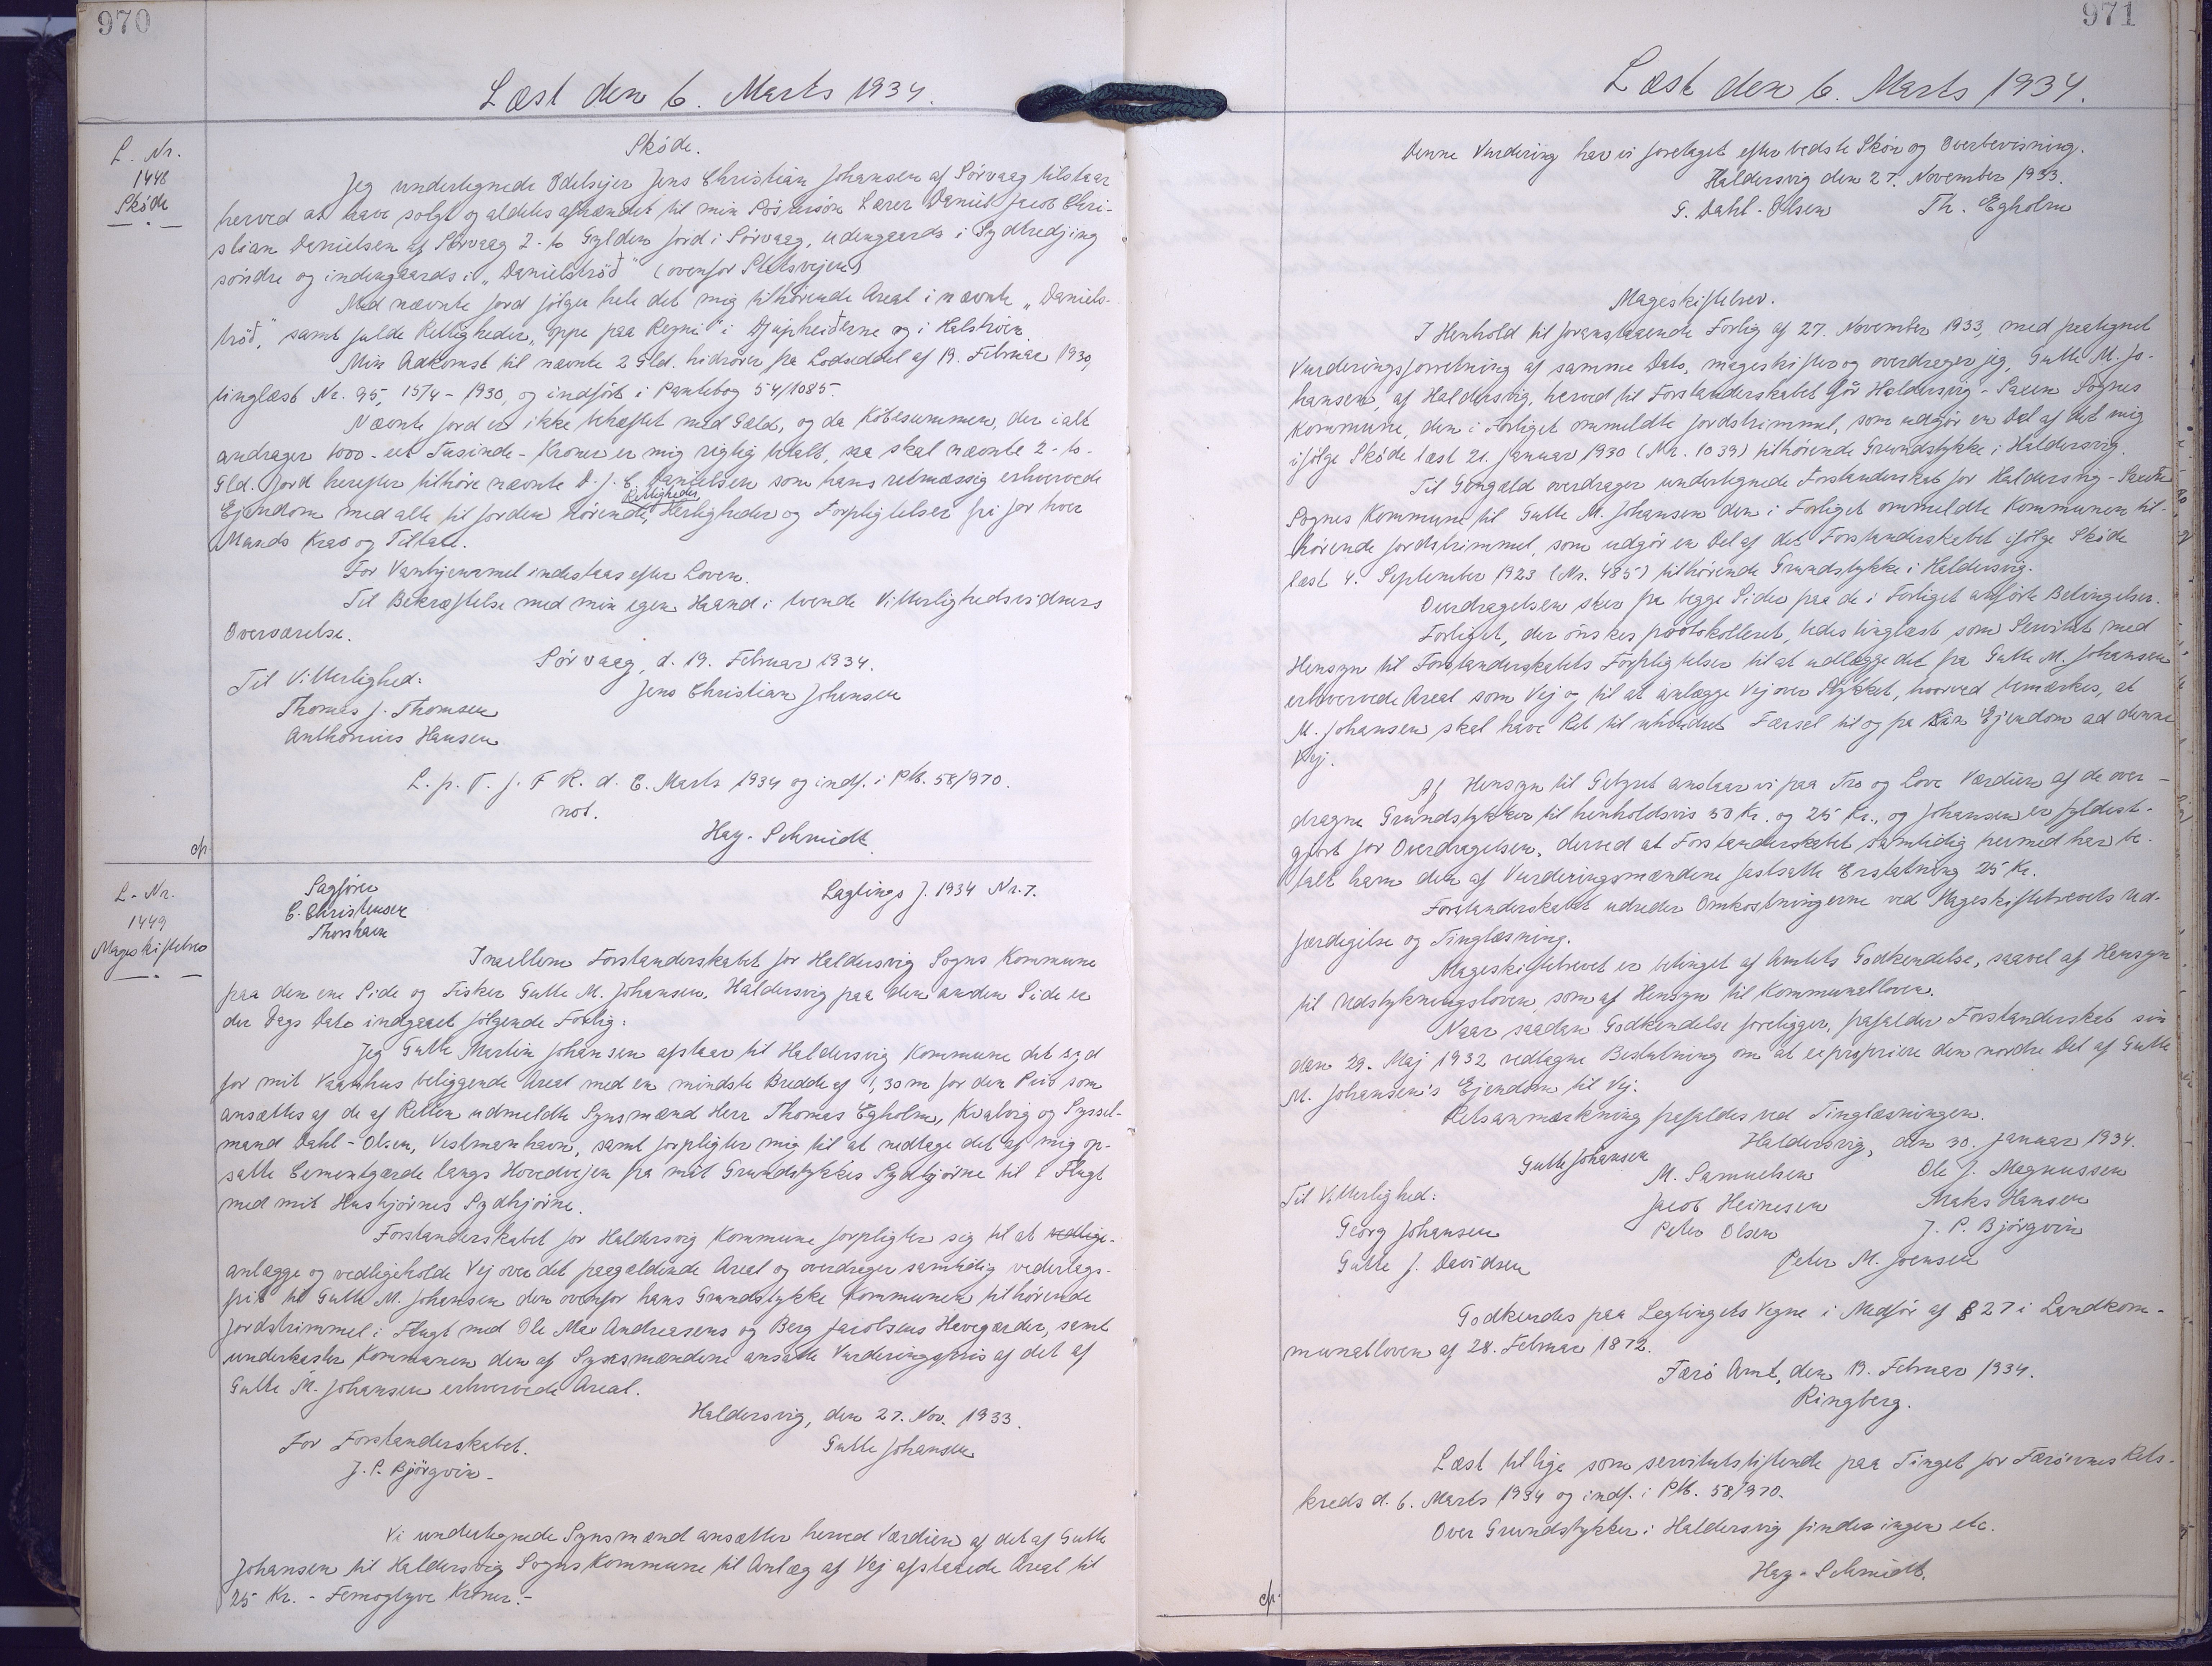 970
Læst den 6. Marts 1934.
L. Nr.
1448
Skøde
Skøde.
Jeg undertegnede Odelsejer Jens Christian Johansen af Sörvaag tilstaar
herved at have solgt og aldeles afhændet til min Søstersön Lærer Daniel Jacob Chri-
stian Danielsen af Sörvaag 2 - to Gylden Jord i Sörvaag, udengaards i Sydtredjing
söndre og indengaards i „Danielströð" (ovenfor Statsvejen)
Med nævnte Jord følger hele det mig tilhörende Areal i nævnte „Daniels-
tröð", samt fulde Rettigheder „uppe paa Regni" i Djúpheiðerne og i
Min Adkomst til nævnte 2 Gld. hidrörer fra Lodseddel af 19. Februar 1930,
tinglæst Nr. 95, 15/4 - 1930, og indfört i Pantebog 54/1085.
Nævnte Jord er ikke behæftet med Gæld, og da Köbesummen, der ialt
andrager 1000 - eet Tusinde - Kroner er mig rigtig betalt, saa skal nævnte 2 - to -
Gld. Jord herefter tilhöre nævnte D. J. C. Danielsen som hans retmæssig erhvervede
Ejendom med alle til Jorden hørende Rettigheder, Herligheder og Forpligtelser fri for hver
Mands Krav og Tiltale.
For Vanhjemmel indestaas efter Loven.
Til Bekræftelse med min egen Haand i tvende Vitterlighedsvidners
Overværelse.
Sörvaag, d. 19. Februar 1934.
Til Vitterlighed:
Jens Christian Johansen
Thomas J. Thomsen
Anthonius Hansen
L. p. T. f. F. R. d. 6. Marts 1934 og indf. i Ptb. 58/970.
not.
Hay-Schmidt.
L. Nr.
1449
Mageskiftebrev
Sagförer
C. Christensen
Thorshavn
Lagtings J. 1934 Nr. 7.
Imellem Forstanderskabet for Haldersvig Sogns Kommune
paa den ene Side og Fisker Gutte M. Johansen, Haldersvig paa den anden Side er
der Dags Dato indgaaet følgende Forlig:
Jeg Gutte Martin Johansen afstaar til Haldersvig Kommune det syd
for mit Vaanhus beliggende Areal med en mindste Bredde af 1,30 m for den Pris som
ansættes af de af Retten udmeldte Synsmænd Herr Thomas Egholm, Kvalvig og Syssel-
mand Dahl-Olsen, Vestmanhavn, samt forpligter mig til at nedtage det af mig op-
satte Cementgærde langs Hovedvejen fra mit Grundstykkes Sydhjörne til i Flugt
med mit Hushjørnes Sydhjørne.
Forstanderskabet for Haldersvig Kommune forpligter sig til at vedlige-
anlægge og vedligeholde Vej over det paagældende Areal og overdrager samtidig vederlags-
frit til Gutte M. Johansen den ovenfor hans Grundstykke Kommunen tilhörende
Jordstrimmel i Flugt med Ole Mar Andreasens og Berg Jacobsens Havegærder, samt
underkaster Kommunen den af Synsmændene ansatte Vurderingspris af det af
Gutte M. Johansen erhvervede Areal.
Haldersvig, den 27. Nov. 1933.
For Forstanderskabet.
Gutte Johansen
J. P. Björgvin -
Vi undertegnede Synsmænd ansætter herved Værdien af det af Gutte
Johansen til Haldersvig Sogns Kommune til Anlæg af Vej afstaaede Areal til
25 Kr. - Femogtyve Kroner. -
971
Læst den 6. Marts 1934.
Denne Vurdering har vi foretaget efter bedste Skön og Overbevisning.
Haldersvig den 27. November 1933.
G. Dahl-Olsen Th. Egholm
Mageskiftebrev.
I Henhold til foranstaaende Forlig af 27. November 1933, med paategnet
Vurderingsforretning af samme Dato, mageskifter og overdrager jeg, Gutte M. Jo-
hansen, af Haldersvig, herved til Forstanderskabet för Haldersvig-Saxen Sognes
Kommune, den i Forliget ommeldte Jordstrimmel, som udgör en Del af det mig
ifølge Skøde læst 21. Januar 1930 (Nr. 1039) tilhörende Grundstykke i Haldersvig.
Til Gengæld overdrager undertegnede Forstanderskab for Haldersvig-Saxen
Sognes Kommune til Gutte M. Johansen den i Forliget ommeldte Kommunen til-
hörende Jordstrimmel, som udgör en Del af det Forstanderskabet ifölge Skøde
læst 4. September 1923 (Nr. 485) tilhörende Grundstykke i Haldersvig.
Overdragelsen sker fra begge Sider paa de i Forliget anförte Betingelser.
Forliget, der önskes protokolleret, bedes tinglæst som Servitut med
Hensyn til Forstanderskabets Forpligtelser til at udlægge det fra Gutte M. Johansen
erhvervede Areal som Vej og til at anlægge Vej over Stykket, hvorved bemærkes, at
M. Johansen skal have Ret til uhindret Færsel til og fra sin Ejendom ad denne
Vej.
Af Hensyn til Gebyret ansætter vi paa Tro og Love Værdien af de over-
dragne Grundstykker til henholdsvis 50 Kr. og 25 Kr., og Johansen er fyldest-
gjort for Overdragelsen, derved at Forstanderskabet samtidig hermed har be-
talt ham den af Vurderingsmændene fastsatte Erstatning 25 Kr.
Forstanderskabet udreder Omkostningerne ved Mageskiftebrevets Ud-
færdigelse og Tinglæsning.
Mageskiftebrevet er betinget af Amtets Godkendelse, saavel af Hensyn
til Udstykningsloven, som af Hensyn til Kommunalloven.
Naar saadan Godkendelse foreligger, frafalder Forstanderskabet sin
den 29. Maj 1932 vedtagne Beslutning om at expropriere den nordre Del af Gutte
M. Johansen's Ejendom til Vej.
Retsanmærkning frafaldes ved Tinglæsningen.
Haldersvig, den 30. Januar 1934.
Gutte Johansen
M. Samuelsen Ole J. Magnussen
Til Vitterlighed:
Jacob Heinesen Maks Hansen
Georg Johansen Peter Olsen J. P. Björgvin
Gutte J. Davidsen Peter M. Joensen
Godkendes paa Lagtingets Vegne i Medför af § 27 i Landkom-
munalloven af 28. Februar 1872.
Færö Amt, den 19. Februar 1934.
Ringberg.
Læst tillige som servitutstiftende paa Tinget for Færöernes Rets-
kreds d. 6. Marts 1934 og indf. i Ptb. 58/970.
Over Grundstykker i Haldersvig findes ingen etc.
Hay-Schmidt.